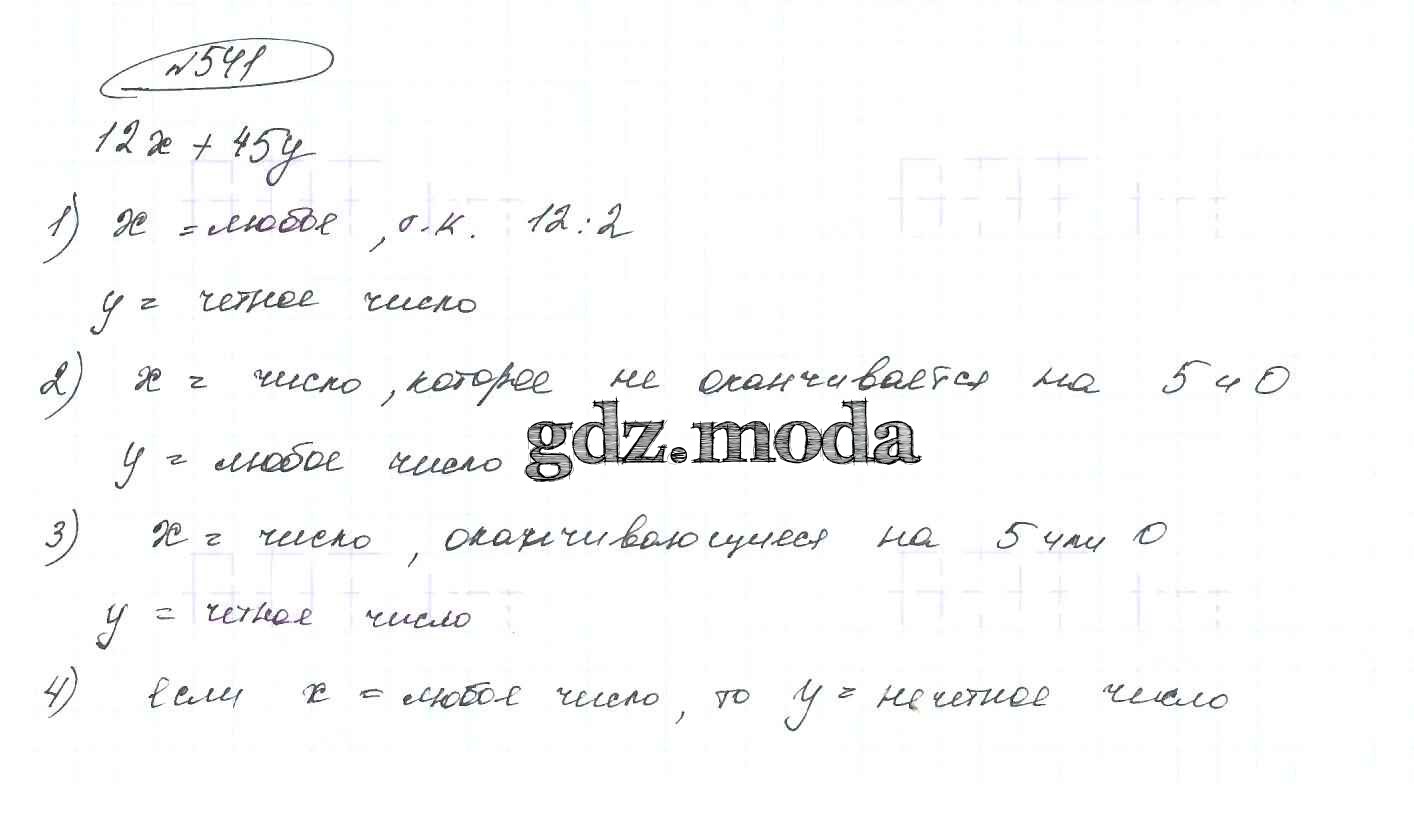 №541
12x + 45y
1) x = любое, т.к. 12:2
y = четное число
2) x = число, которое не оканчивается на 5 и 0
gdz.moda
y = любое число
3) x = число, оканчивающиеся на 5 или 0
y = четное число
4) если x = любое число, то y = нечетное число